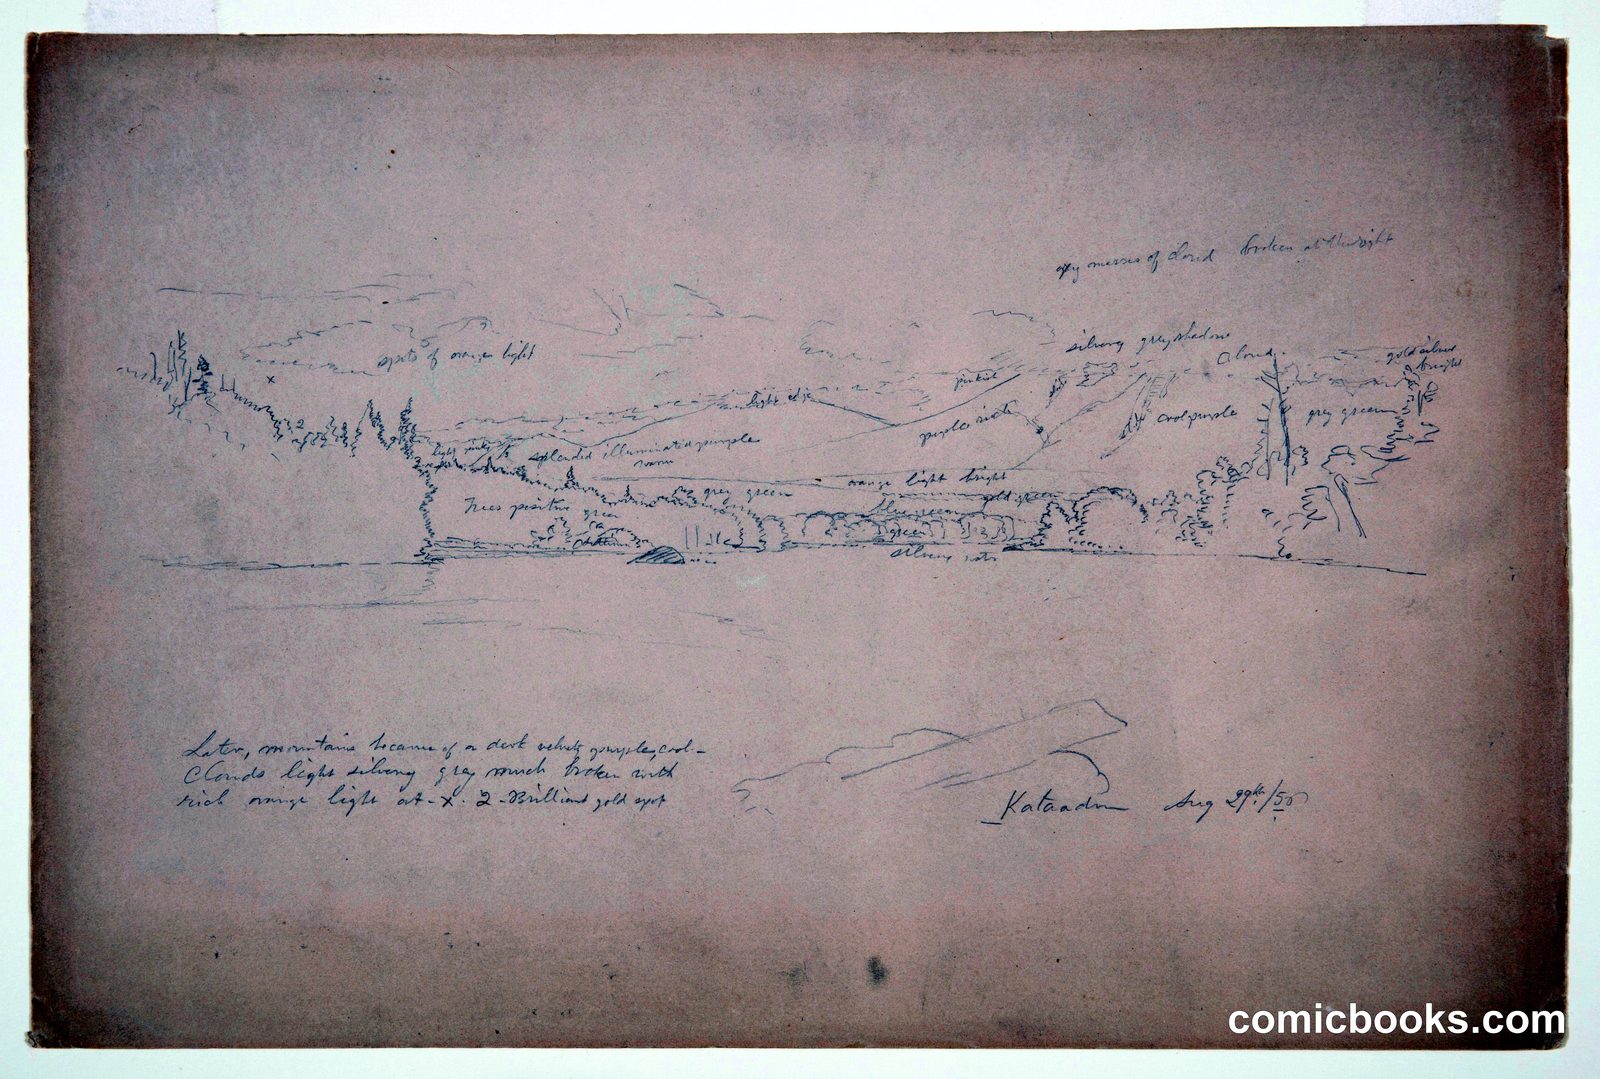 masses of cloud broken at the right
silvery grey shadow
cloud
gold silver
bright
spots of orange light
pinkish
light edge
cool purple
grey green
purple
light
splendid illuminated purple
warm
orange light bright
grey green
gold green
Trees positive green
green
silvery
Later, mountains became of a dark velvety purple, cool—
Clouds light silvery grey much broken with
rich orange light at - x. 2 - Brilliant gold spot
Kataadn Aug 29th/
comicbooks.com